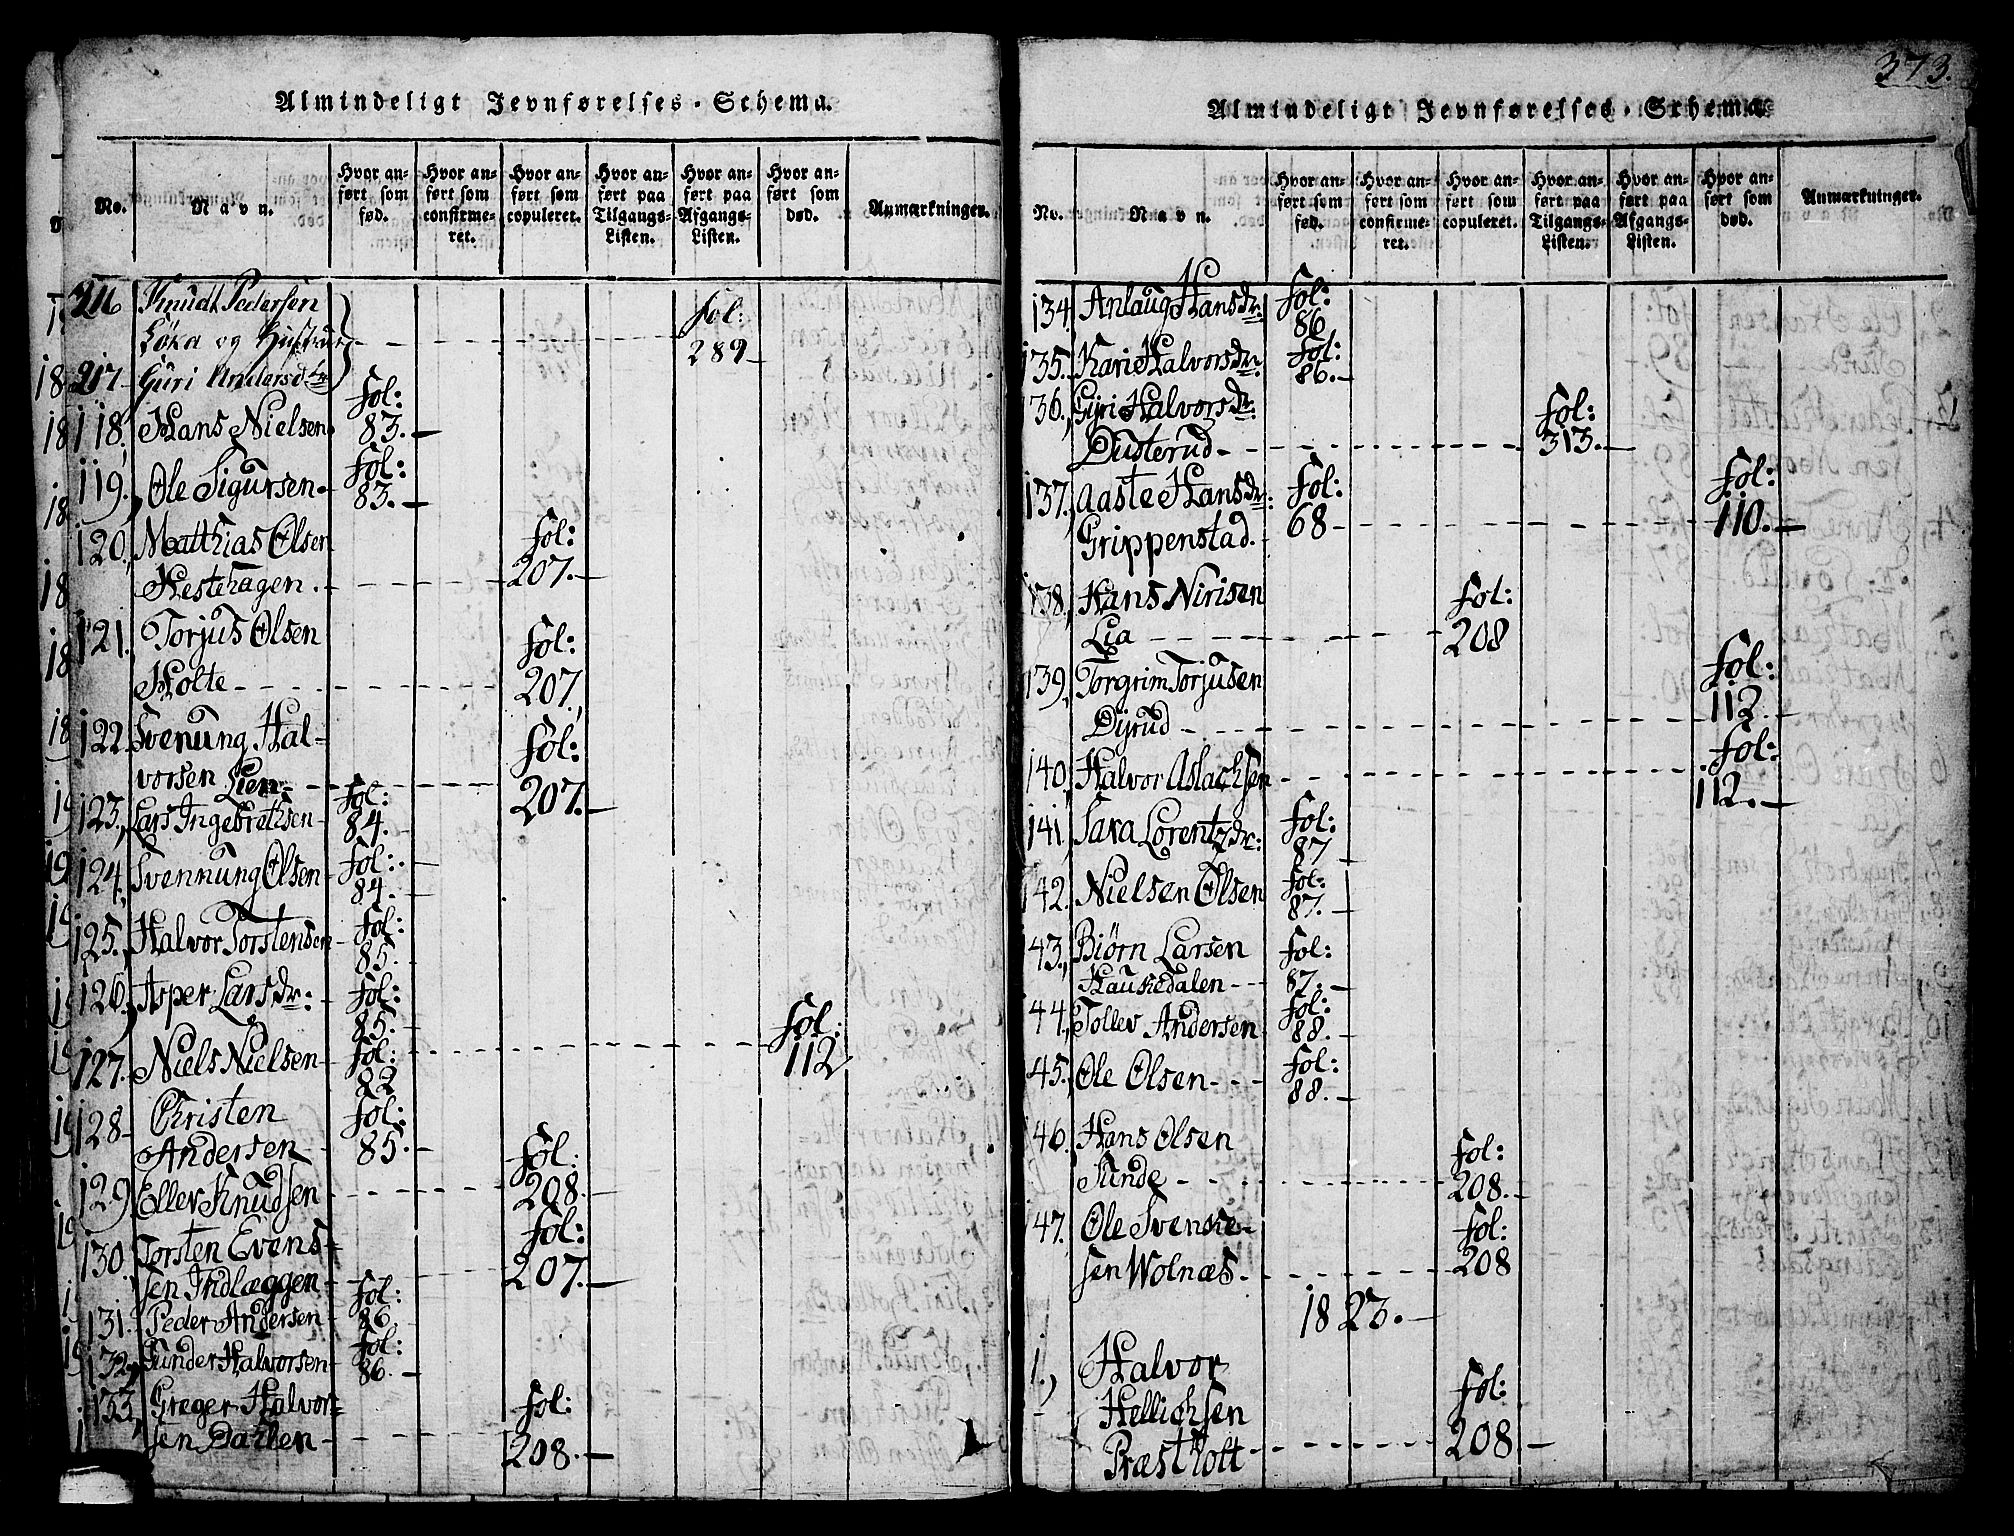 373.
Almindeligt Jevnførelses-Schema.
No. Navn. Hvor anført som fød. Hvor anført som confirmeret. Hvor anført som copuleret. Hvor anført paa Tilgangs-Listen. Hvor anført paa Afgangs-Listen. Hvor anført som død. Anmærkninger.
Knudt Pedersen
Løka og Hustrue Fol: 289
Guri Andersdtr
118, Hans Nielsen Fol: 83.
119, Ole Sigursen Fol: 83.
120, Matthias Olsen
Hestehagen. Fol: 207.
121. Torjus Olsen
Holte Fol: 207,
122. Svenung Hal=
vorsen Lien Fol: 207.
123, Lars Ingebrethsen Fol: 84.
124, Svennung Olsen Fol: 84.
125. Halvor Torstensen Fol: 85.
126, Asper Larsdr: Fol: 85.
127. Niels Nielsen Fol: 82 Fol: 112
128 Christen
Andersen Fol: 85.
129 Eller Knudsen Fol: 208.
130. Torsten Evens=
sen Indlæggen Fol: 207.
131. Peder Andersen Fol: 86.
132, Gunder Halvorsen Fol: 86.
133, Greger Halvor=
sen Barlen Fol: 208.
Almindeligt Jevnførelses-Schema.
No. Navn. Hvor anført som fød. Hvor anført som confirmeret. Hvor anført som copuleret. Hvor anført paa Tilgangs-Listen. Hvor anført paa Afgangs-Listen. Hvor anført som død. Anmærkninger.
134. Anlaug Hansdr: Fol: 86
135. Kari Halvorsdr: Fol: 86.
36, Gyri Halvorsdr:
Dusterud Fol: 313.
137. Aaste Hansdr: Fol:
Grippenstad. 68 Fol: 110.
138, Hans Nirisen
Lia Fol: 208
139, Torgrim Torjusen
Dyrud Fol: 112.
140. Halvor Aslachsen Fol: 112.
141, Sara Lorentzdr: Fol: 87
142. Nielsen Olsen Fol: 87.
43, Biørn Larsen Fol:
Haukedalen 87.
44, Tollev Andersen Fol: 88.
45, Ole Olsen Fol: 88.
46. Hans Olsen
Sunde Fol: 208.
47. Ole Svenske=
sen Wolnæs Fol: 208
1823.
1., Halvor
Hellichsen
Præstholt Fol: 208